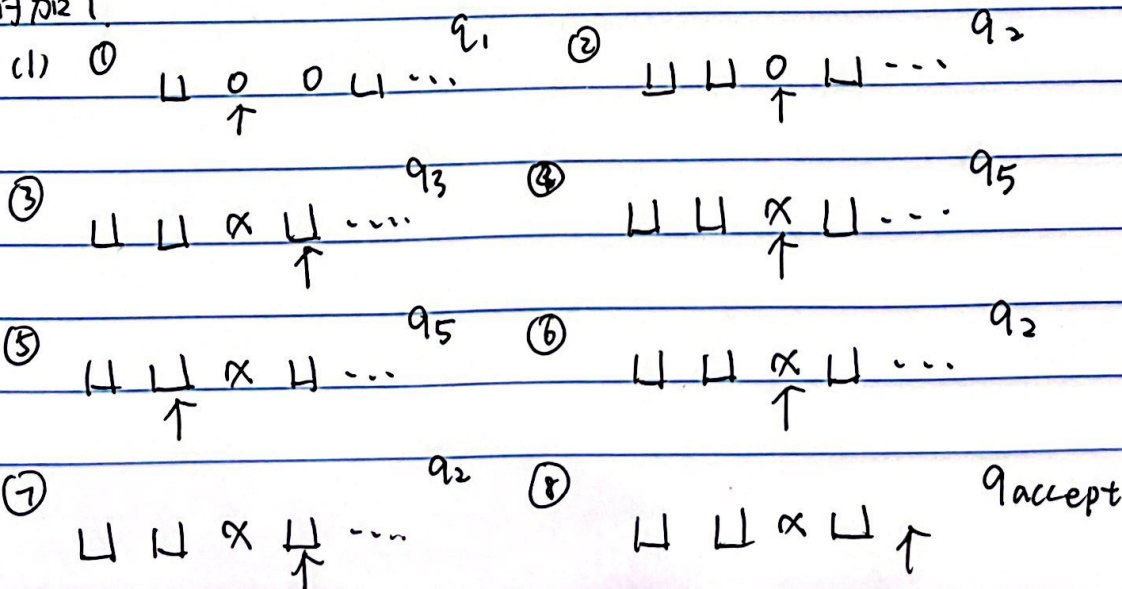 (1) ① ⊔ 0 0 ⊔ ... q₁
② ⊔ ⊔ 0 ⊔ ... q₂
↑ ↑
③ ⊔ ⊔ x ⊔ .... q₃
④ ⊔ ⊔ x ⊔ ... q₅
↑ ↑
⑤ ⊔ ⊔ x ⊔ ... q₅
⑥ ⊔ ⊔ x ⊔ ... q₂
↑ ↑
⑦ ⊔ ⊔ x ⊔ .... q₂
⑧ ⊔ ⊔ x ⊔ ↑ q accept
↑